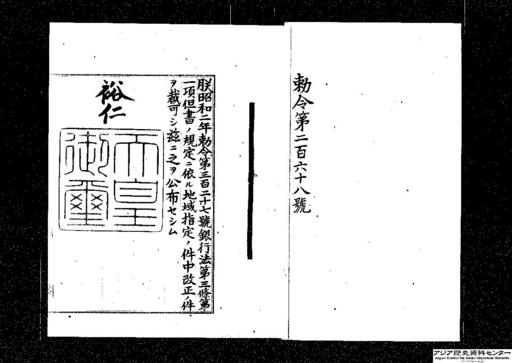 勅令第二百六十八號
朕昭和二年勅令第三百二十七號銀行法第三條第
一項但書ノ規定ニ依ル地域指定ノ件中改正ノ件
ヲ裁可シ茲ニ之ヲ公布セシム
裕仁
天皇
御璽
アジア歴史資料センター
Japan Center for Asian Historical Records